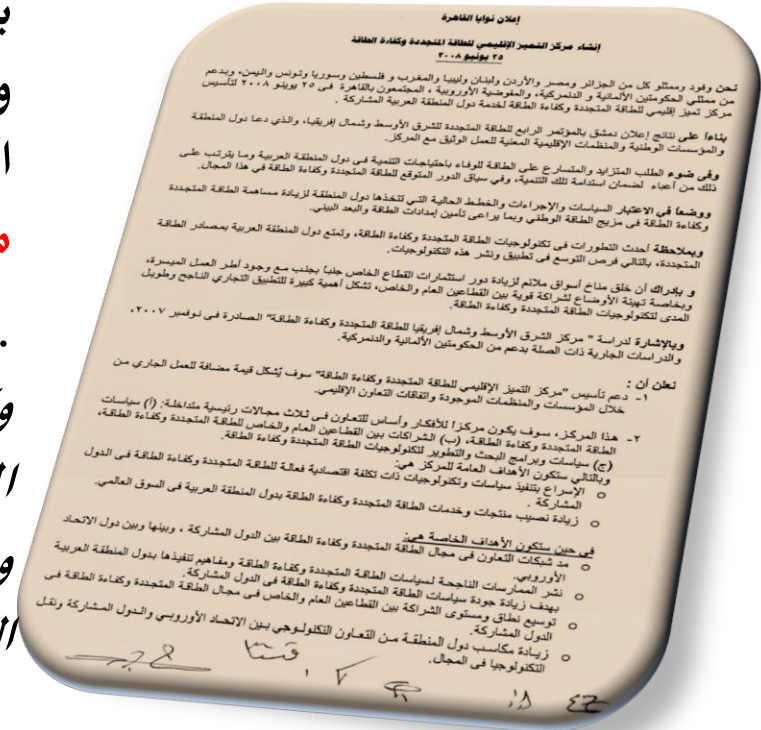 إعلان نوايا القاهرة
إنشاء مركز التميز الإقليمي للطاقة المتجددة وكفاءة الطاقة
٢٥ يونيو ٢٠٠٨
نحن وفود وممثلو كل من الجزائر ومصر والأردن ولبنان وليبيا والمغرب و فلسطين وسوريا وتونس واليمن، وبدعم
من ممثلي الحكومتين الألمانية و الدنمركية، والمفوضية الأوروبية ، المجتمعون بالقاهرة فى ٢٥ يوينو ٢٠٠٨ لتأسيس
مركز تميز إقليمي للطاقة المتجددة وكفاءة الطاقة لخدمة دول المنطقة العربية المشاركة .
بناءا على نتائج إعلان دمشق بالمؤتمر الرابع للطاقة المتجددة للشرق الأوسط وشمال إفريقيا، والذي دعا دول المنطقة
والمؤسسات الوطنية والمنظمات الإقليمية المعنية للعمل الوثيق مع المركز.
وفى ضوء الطلب المتزايد والمتسارع على الطاقة للوفاء باحتياجات التنمية فى دول المنطقة العربية وما يترتب على
ذلك من أعباء لضمان استدامة تلك التنمية، وفي سياق الدور المتوقع للطاقة المتجددة وكفاءة الطاقة في هذا المجال.
ووضعاً في الاعتبار السياسات والإجراءات والخطط الحالية التي تتخذها دول المنطقة لزيادة مساهمة الطاقة المتجددة
وكفاءة الطاقة فى مزيج الطاقة الوطني وبما يراعى تأمين إمدادات الطاقة والبعد البيئي.
وبملاحظة أحدث التطورات فى تكنولوجيات الطاقة المتجددة وكفاءة الطاقة، وتمتع دول المنطقة العربية بمصادر الطاقة
المتجددة، بالتالي فرص التوسع في تطبيق ونشر هذه التكنولوجيات.
و بإدراك أن خلق مناخ أسواق ملائم لزيادة دور استثمارات القطاع الخاص جنباً بجنب مع وجود أطر العمل الميسرة،
وبخاصة تهيئة الأوضاع لشراكة قوية بين القطاعين العام والخاص، تشكل أهمية كبيرة للتطبيق التجاري الناجح وطويل
المدى لتكنولوجيات الطاقة المتجددة وكفاءة الطاقة.
وبالإشارة لدراسة " مركز الشرق الأوسط وشمال إفريقيا للطاقة المتجددة وكفاءة الطاقة" الصادرة فى نوفمبر ٢٠٠٧،
والدراسات الجارية ذات الصلة بدعم من الحكومتين الألمانية والدنمركية.
نعلن أن :
١- دعم تأسيس "مركز التميز الإقليمي للطاقة المتجددة وكفاءة الطاقة" سوف يُشكل قيمة مضافة للعمل الجاري من
خلال المؤسسات والمنظمات الموجودة واتفاقات التعاون الإقليمي.
٢- هذا المركز، سوف يكون مركزا للأفكار وأساس للتعاون فى ثلاث مجالات رئيسية متداخلة: (أ) سياسات
الطاقة المتجددة وكفاءة الطاقة، (ب) الشراكات بين القطاعين العام والخاص للطاقة المتجددة وكفاءة الطاقة،
(ج) سياسات وبرامج البحث والتطوير لتكنولوجيات الطاقة المتجددة وكفاءة الطاقة.
وبالتالي ستكون الأهداف العامة للمركز هي:
○ الإسراع بتنفيذ سياسات وتكنولوجيات ذات تكلفة اقتصادية فعالة للطاقة المتجددة وكفاءة الطاقة فى الدول
المشاركة .
○ زيادة نصيب منتجات وخدمات الطاقة المتجددة وكفاءة الطاقة بدول المنطقة العربية في السوق العالمي.
في حين ستكون الأهداف الخاصة هي:
○ مد شبكات التعاون فى مجال الطاقة المتجددة وكفاءة الطاقة بين الدول المشاركة ، وبينها وبين دول الاتحاد
الأوروبي.
○ نشر الممارسات الناجحة لسياسات الطاقة المتجددة وكفاءة الطاقة ومفاهيم تنفيذها بدول المنطقة العربية
بهدف زيادة جودة سياسات الطاقة المتجددة وكفاءة الطاقة فى الدول المشاركة.
○ توسيع نطاق ومستوى الشراكة بين القطاعين العام والخاص فى مجال الطاقة المتجددة وكفاءة الطاقة فى
الدول المشاركة.
○ زيادة مكاسب دول المنطقة من التعاون التكنولوجي بين الاتحاد الأوروبي والدول المشاركة ونقل
التكنولوجيا فى المجال.